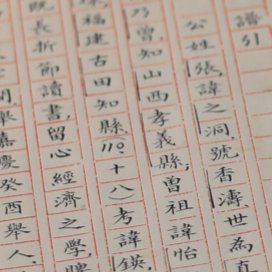 譜引
公姓張，諱之洞，號香濤，世為直
乃曾，知山西孝義縣，曾祖諱怡
福建古田知縣，110.十八)考諱鍈，
既長折節讀書，留心經濟之學，
舉嘉慶癸酉舉人，